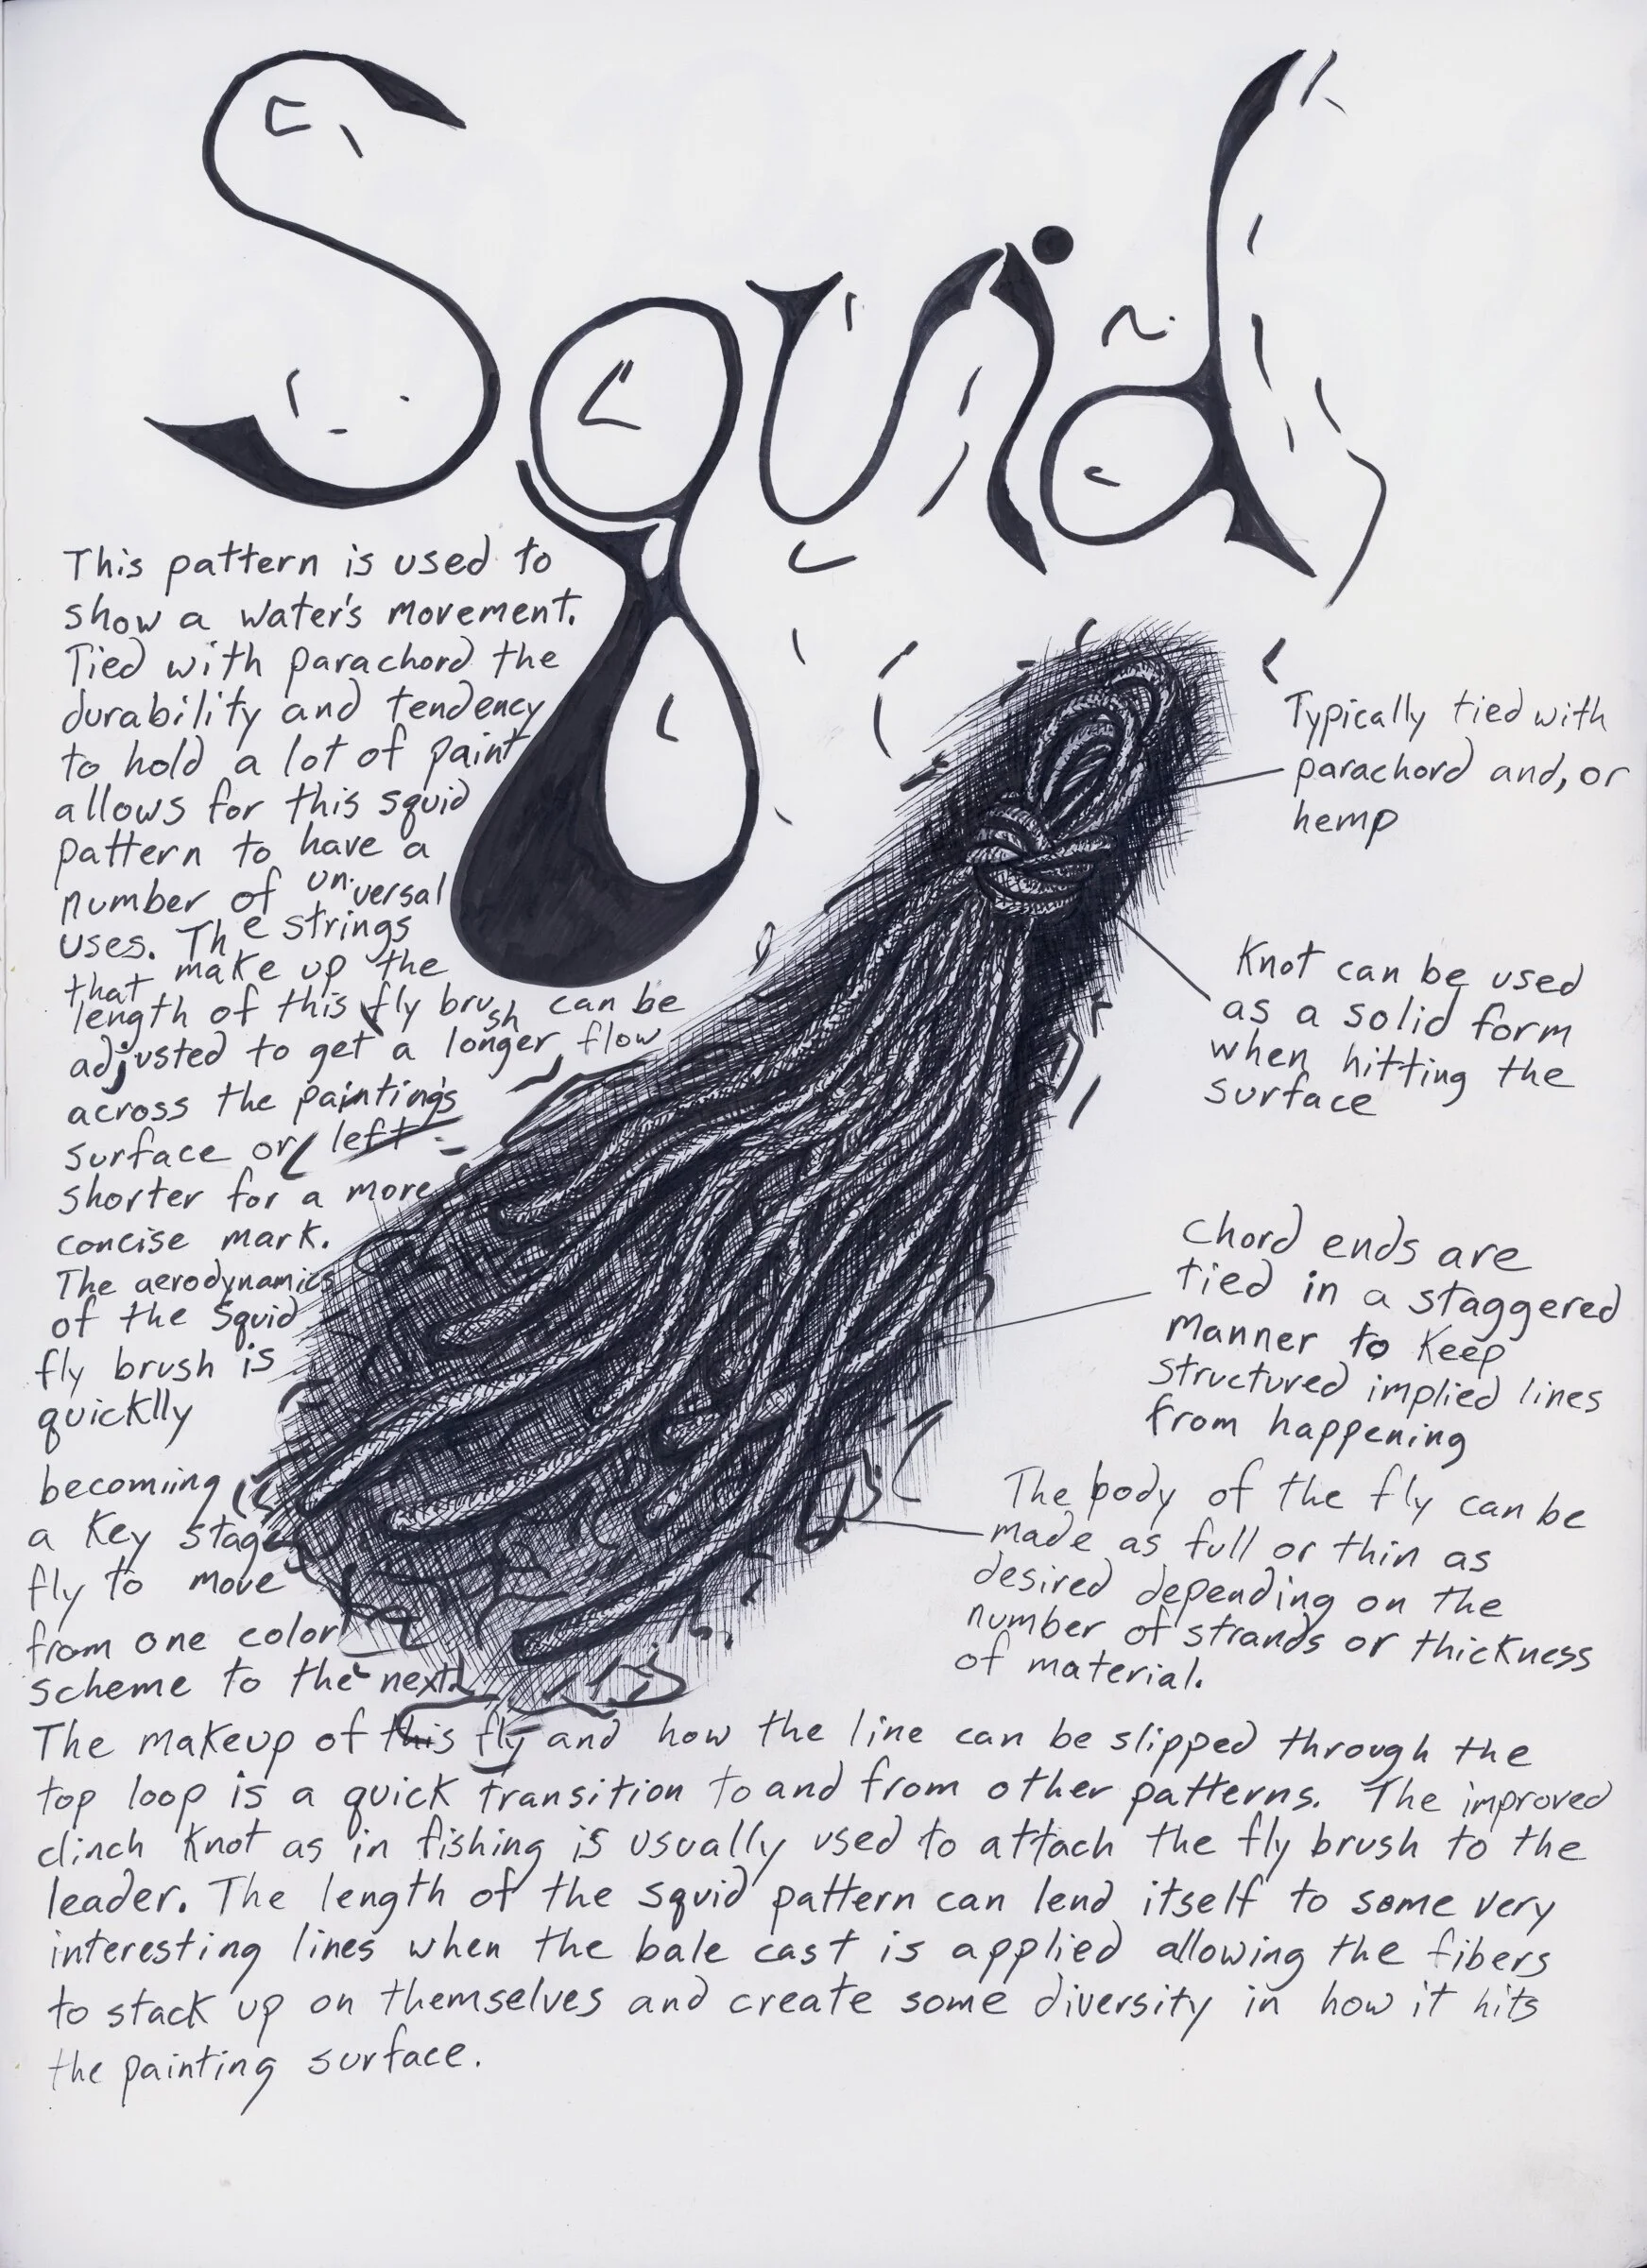 Squid
This pattern is used to
show a water's movement.
Tied with parachord the
durability and tendency
to hold a lot of paint
allows for this squid
pattern to have a
number of universal
uses. The strings
that make up the
length of this fly brush can be
adjusted to get a longer flow
across the painting's
surface or left
shorter for a more
concise mark.
The aerodynamics
of the Squid
fly brush is
quicklly
becomiing
a key stage
fly to move
from one color
scheme to the next.
The makeup of this fly and how the line can be slipped through the
top loop is a quick transition to and from other patterns. The improved
clinch knot as in fishing is usually used to attach the fly brush to the
leader. The length of the squid pattern can lend itself to some very
interesting lines when the bale cast is applied allowing the fibers
to stack up on themselves and create some diversity in how it hits
the painting surface.
Typically tied with
parachord and, or
hemp
Knot can be used
as a solid form
when hitting the
surface
Chord ends are
tied in a staggered
manner to keep
structured implied lines
from happening
The body of the fly can be
made as full or thin as
desired depending on the
number of strands or thickness
of material.